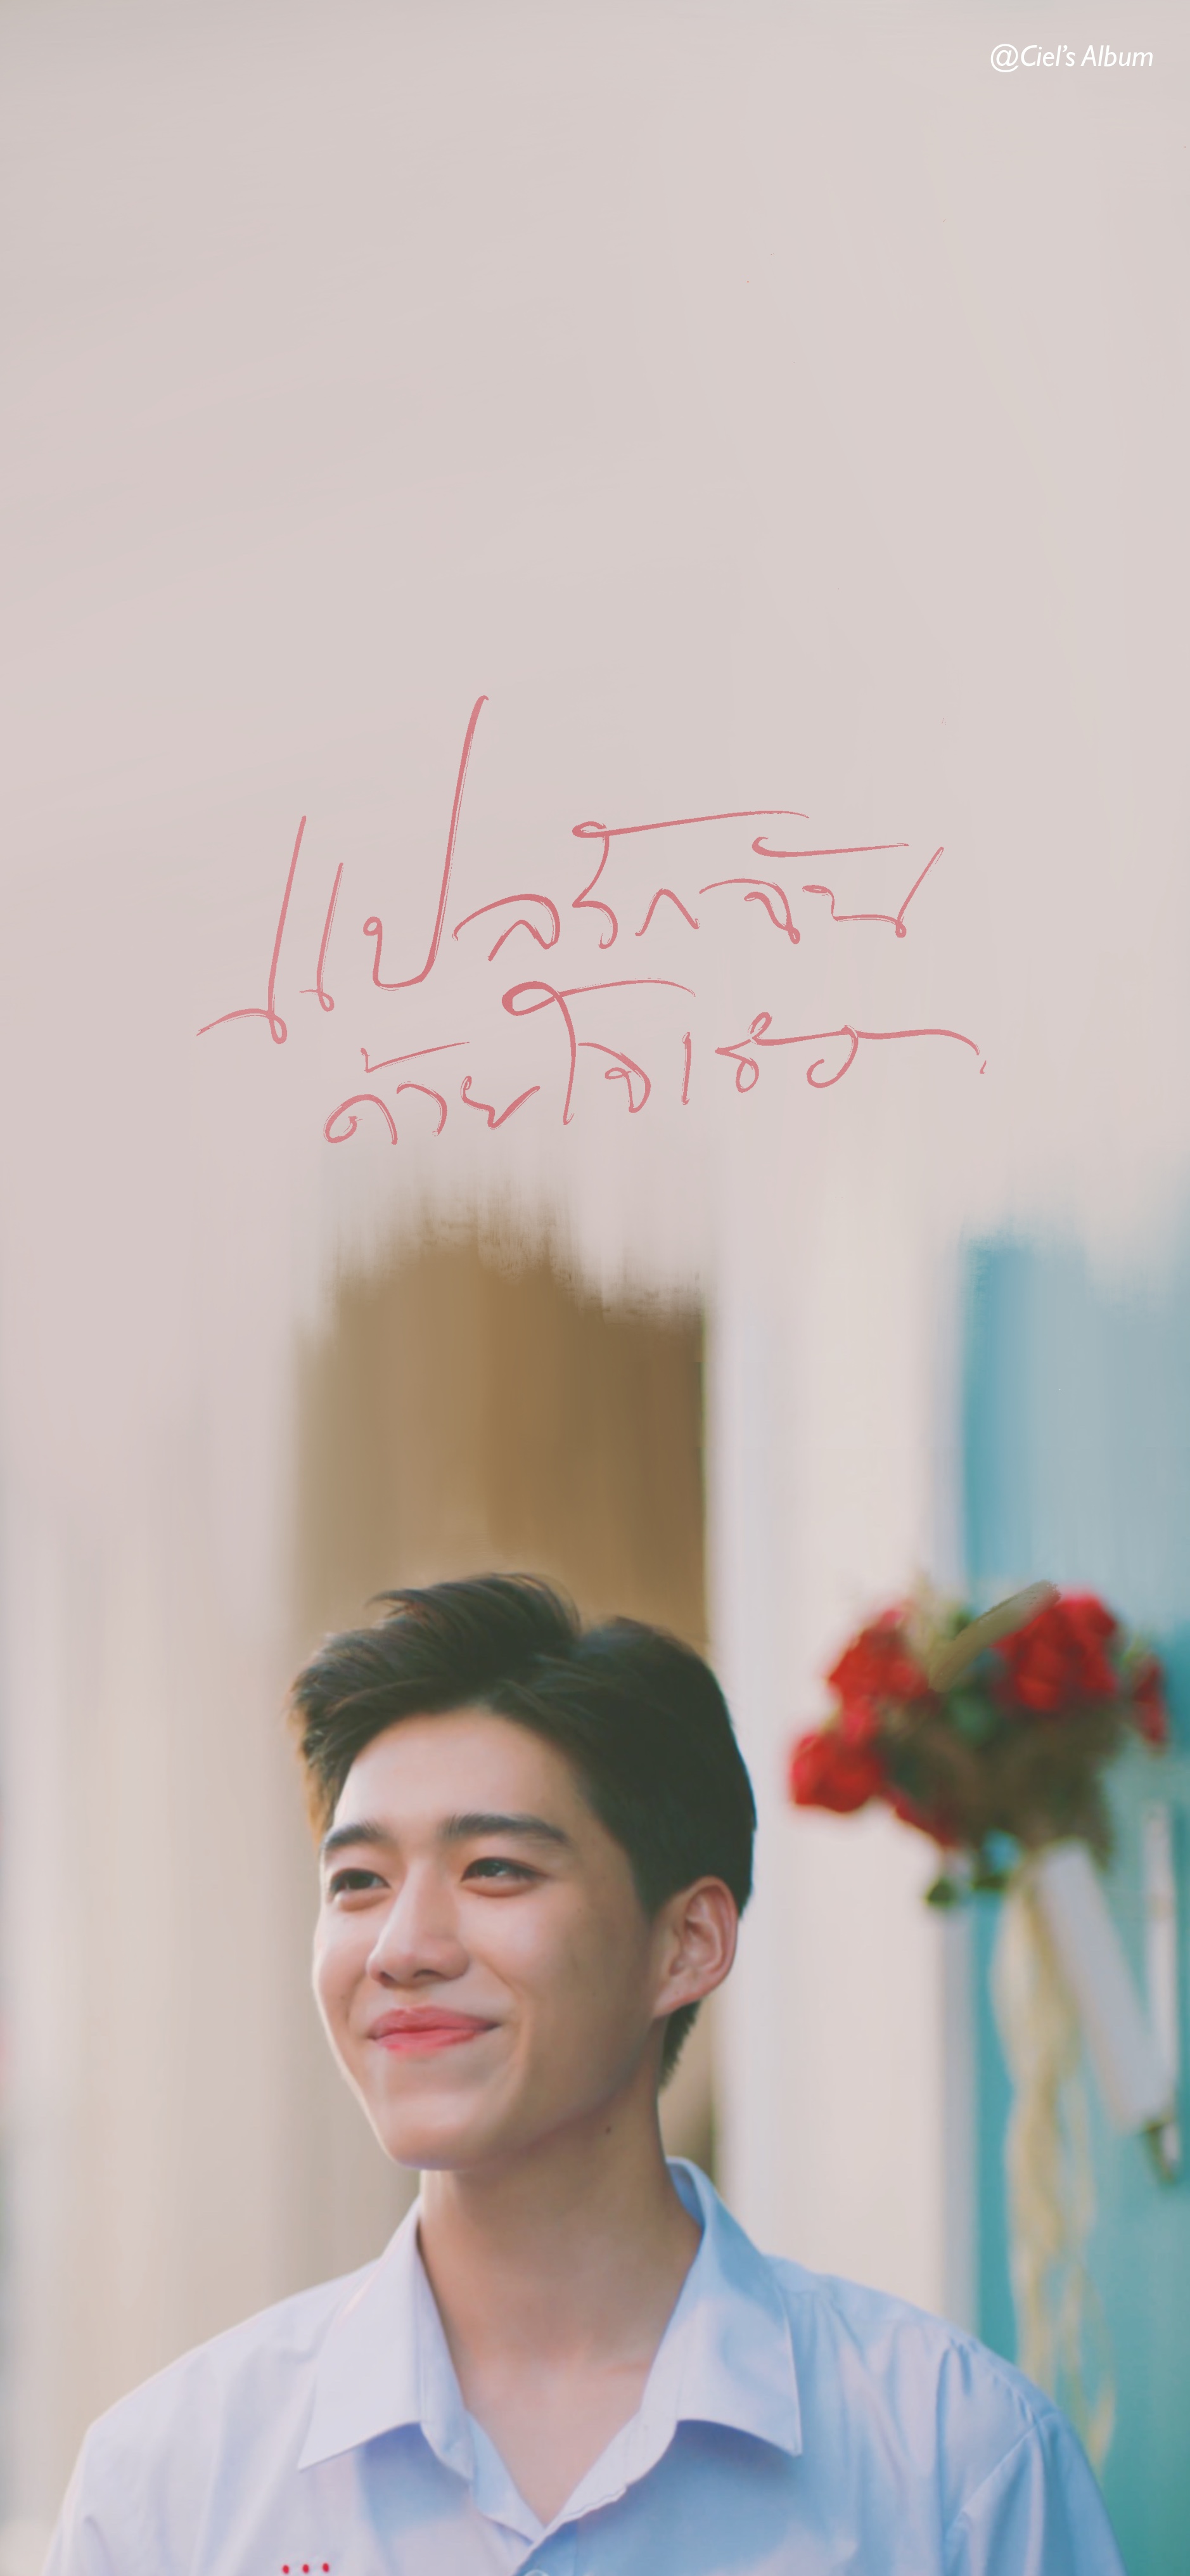 @Ciel's Album
แปลรักฉัน
ด้วยใจเธอ